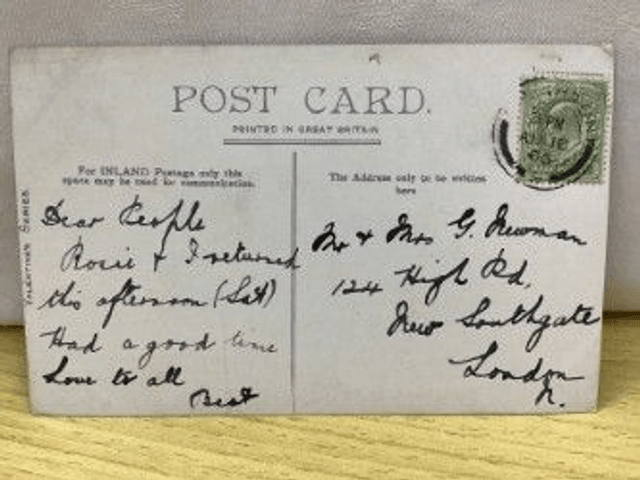 POST CARD.
PRINTED IN GREAT BRITAIN
For INLAND Postage only this
space may be used for communication.
The Address only to be written
here
VALENTINES SERIES
Dear People
Rosie & I returned
this afternoon (Sat)
Had a good time
Love to all
Bert
Mr & Mrs G. Newman
124 High Rd,
New Southgate
London
N.